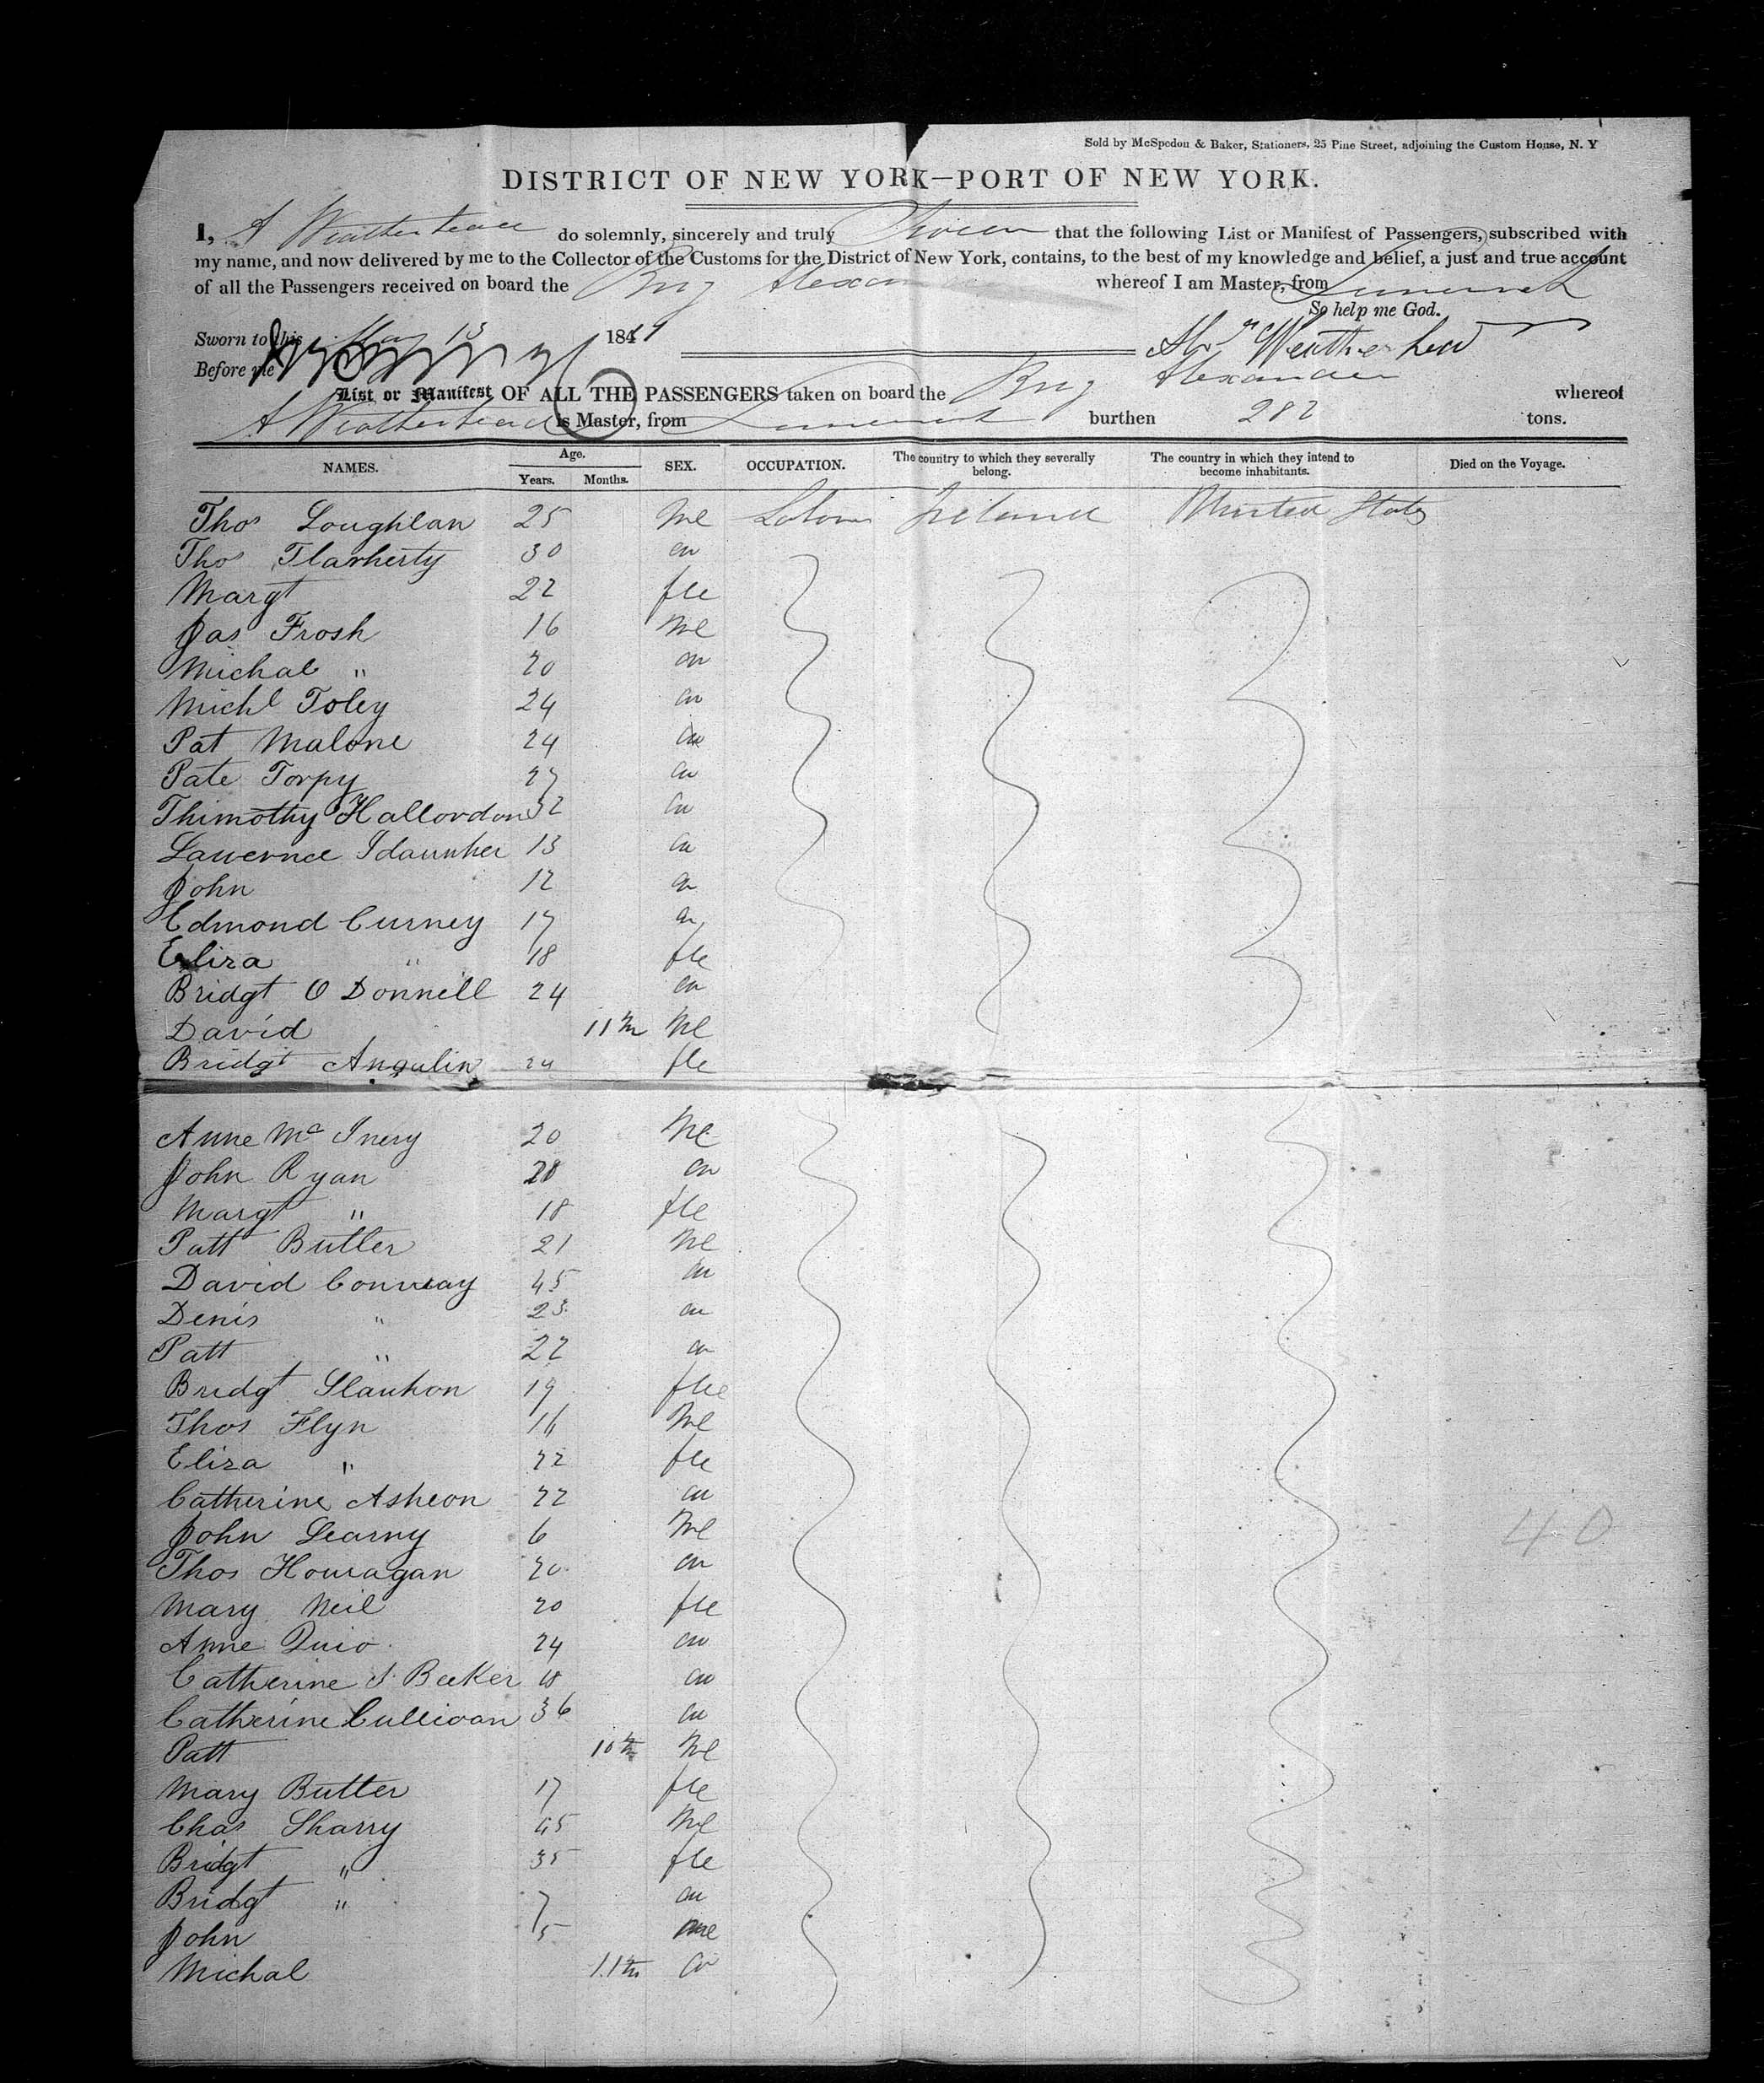 Sold by McSpedon & Baker, Stationers, 25 Pine Street, adjoining the Custom House, N. Y
DISTRICT OF NEW YORK—PORT OF NEW YORK.
I, A Weatherhead do solemnly, sincerely and truly Swear that the following List or Manifest of Passengers, subscribed with
my name, and now delivered by me to the Collector of the Customs for the District of New York, contains, to the best of my knowledge and belief, a just and true account
of all the Passengers received on board the Brig Alexander whereof I am Master, from Limerick
So help me God.
Sworn to this May 13 1849
Weatherhead
Before me
List or Manifest OF ALL THE PASSENGERS taken on board the Brig Alexander whereof
A Weatherhead is Master, from Limerick burthen 282 tons.
NAMES. Age. Years. Months. SEX. OCCUPATION. The country to which they severally belong. The country in which they intend to become inhabitants. Died on the Voyage.
Thos Loughlan 25 Me Labour Ireland United States
Thos Flarherty 30 "
Margt 22 fle
Jas Frosh 16 Me
Michal " 20
Michl Foley 24
Pat Malone 24
Pate Torpy 27
Thimothy Hallordon 32
Lawernce 13
John 12
Edmond Curney 17
Eliza " 18 fle
Bridgt O Donnell 24
David 11 m Me
Bridgt Angulin 24 fle
Anne Mc Inery 20 Me
John Ryan 28
Margt " 18 fle
Patt Butler 21 Me
David Conway 45
Denis " 23
Patt " 22
Bridgt Slauhon 19 fle
Thos Flyn 16 Me
Eliza " 22 fle
Catherine Asheon 22
John Learny 6 Me
Thos Houragan 20
Mary Neil 20 fle
Anne Quio 24
Catherine S. Beeker 18
Catherine Cullivan 36
Patt 10 m Me
Mary Butler 17 fle
Chas Sharry 45 Me
Bridgt " 35 fle
Bridgt " 7
John 5 Me
Michal 11 m
40